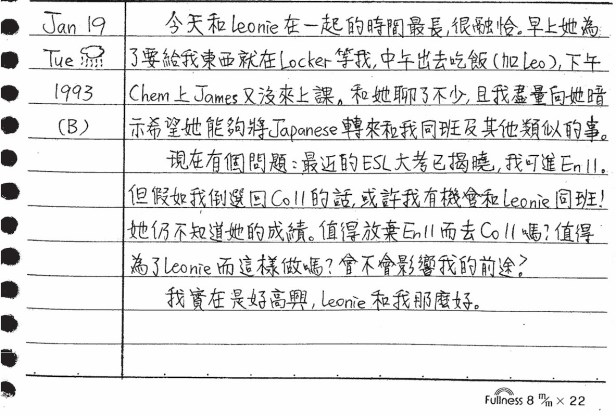 Jan 19 今天和Leonie在一起的時間最長,很融恰。早上她為
Tue 了要給我東西就在Locker等我,中午出去吃飯(加Leo),下午
1993 Chem上James又沒來上課。和她聊了不少,且我盡量向她暗
(B) 示希望她能夠將Japanese轉來和我同班及其他類似的事。
現在有個問題:最近的ESL大考已揭曉,我可進En11。
但假如我倒選回Co11的話,或許我有機會和Leonie同班!
她仍不知道她的成績。值得放棄En11而去Co11嗎?值得
為了Leonie而這樣做嗎?會不會影響我的前途?
我實在是好高興,Leonie和我那麼好。
Fullness 8 m/m × 22